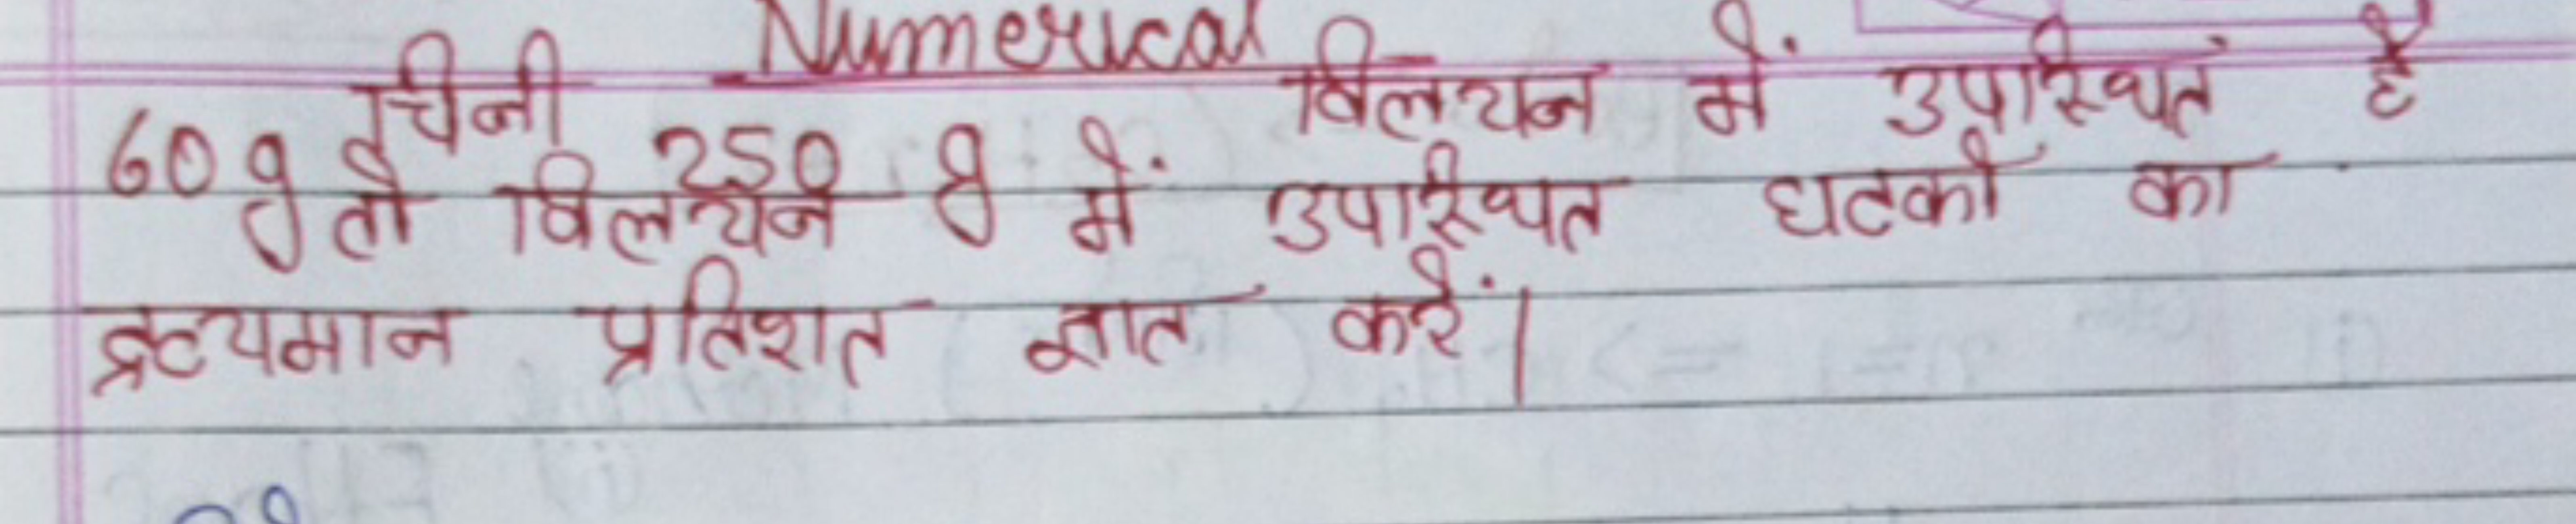 Numerical
60g चिनी 250 g विलयन में उपस्थित है
तो विलयन में उपस्थित घटकों का
द्रव्यमान प्रतिशत ज्ञात करें।